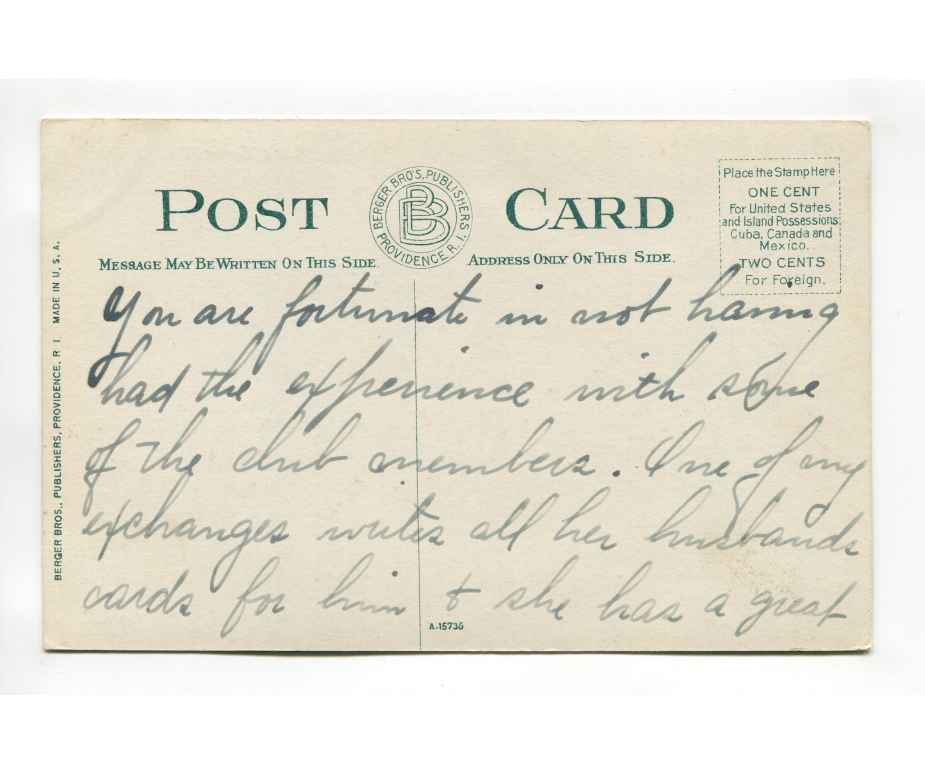 POST CARD
BERGER BRO'S. PUBLISHERS
PROVIDENCE R. I.
BBB
Place the Stamp Here
ONE CENT
For United States
and Island Possessions
Cuba, Canada and
Mexico.
TWO CENTS
For Foreign.
MESSAGE MAY BE WRITTEN ON THIS SIDE
ADDRESS ONLY ON THIS SIDE.
BERGER BROS., PUBLISHERS, PROVIDENCE, R I. MADE IN U. S. A.
You are fortunate in not having
had the experience with some
of the club members. One of my
exchanges writes all her husbands
cards for him & she has a great
A-15736